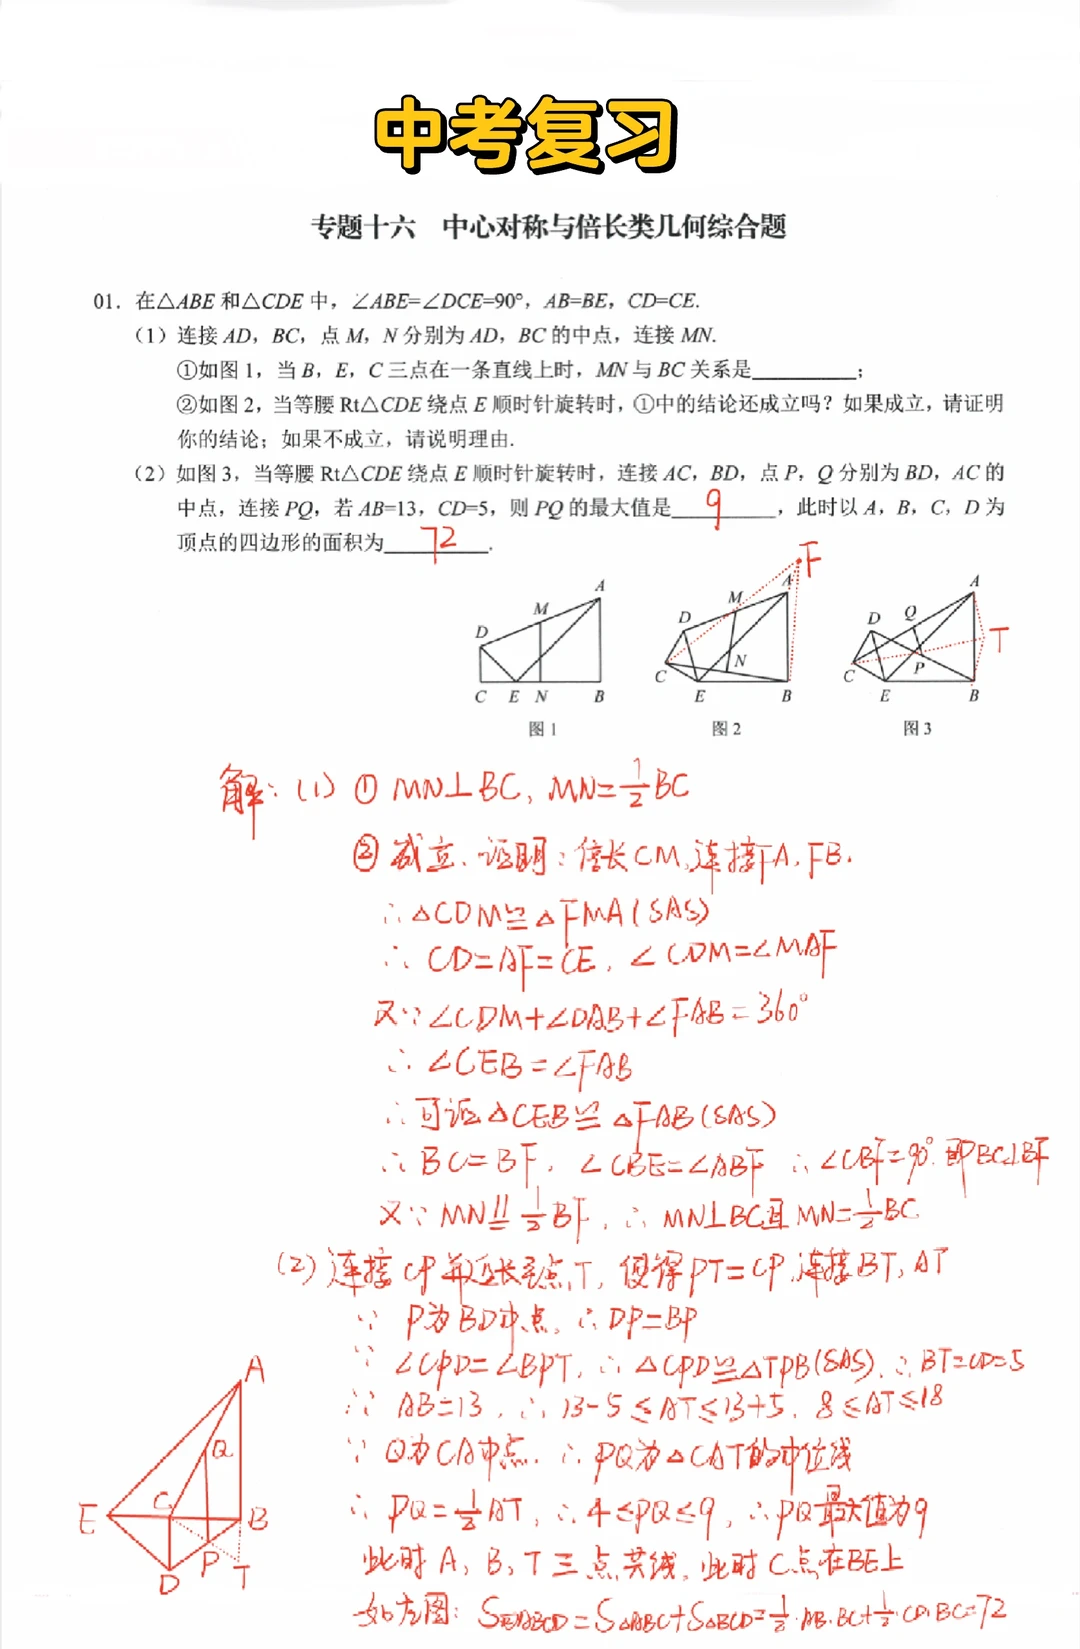 中考复习
专题十六 中心对称与倍长类几何综合题
01. 在△ABE 和△CDE 中，∠ABE=∠DCE=90°，AB=BE，CD=CE.
（1）连接 AD，BC，点 M，N 分别为 AD，BC 的中点，连接 MN.
①如图 1，当 B，E，C 三点在一条直线上时，MN 与 BC 关系是________；
②如图 2，当等腰 Rt△CDE 绕点 E 顺时针旋转时，①中的结论还成立吗？如果成立，请证明
你的结论；如果不成立，请说明理由.
（2）如图 3，当等腰 Rt△CDE 绕点 E 顺时针旋转时，连接 AC，BD，点 P，Q 分别为 BD，AC 的
中点，连接 PQ，若 AB=13，CD=5，则 PQ 的最大值是 9 ，此时以 A，B，C，D 为
顶点的四边形的面积为 72 .
A M D C E N B
图 1
F A M D N C E B
图 2
A Q D T P C E B
图 3
解：(1) ① MN⊥BC，MN=1/2BC
② 成立．证明：倍长CM，连接FA，FB．
∴△CDM≌△FMA(SAS)
∴ CD=AF=CE，∠CDM=∠MAF
又∵∠CDM+∠DAB+∠FAB=360°
∴ ∠CEB=∠FAB
∴可证△CEB≌△FAB(SAS)
∴ BC=BF，∠CBE=∠ABF ∴∠CBF=90°．即BC⊥BF
又∵MN∥=1/2BF，∴ MN⊥BC且MN=1/2BC
(2) 连接CP并延长至点T，使得PT=CP，连接BT，AT
∵ P为BD中点，∴DP=BP
∵ ∠CPD=∠BPT，∴△CPD≌△TPB(SAS)．∴BT=CD=5
∵ AB=13，∴13-5≤AT≤13+5．8≤AT≤18
∵ Q为CA中点．∴PQ为△CAT的中位线
∴ PQ=1/2AT，∴4≤PQ≤9，∴PQ最大值为9
此时A，B，T三点共线，此时C点在BE上
如左图：S四ABCD=S△ABC+S△BCD=1/2·AB·BC+1/2·CD·BC=72
A Q E C B P D T